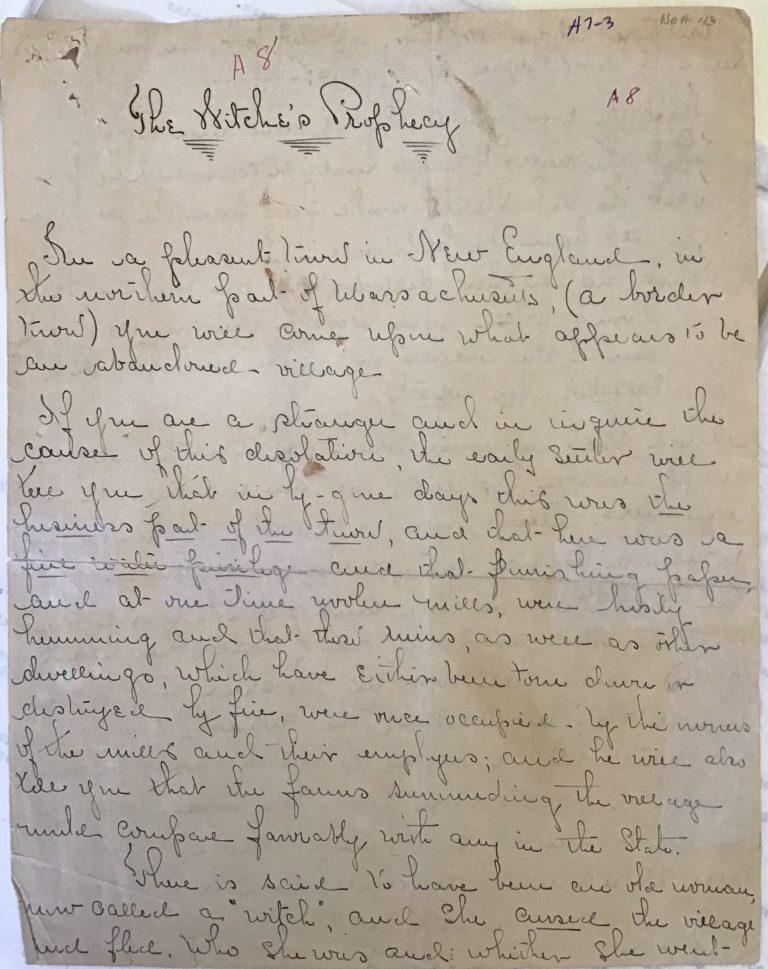 A7-3
A 8
A 8
The Witche's Prophecy
In a pleasent town in New England, in
the northern part of Massachusetts, (a border
town) you will come upon what appears to be
an abandoned village
If you are a stranger and in inquire the
cause of this desolation, the early settler will
tell you, that in by-gone days this was the
business part of the town, and that here was a
fine water privilege and that flourishing paper,
and at one time woolen mills, were busily
humming and that these ruins, as well as other
dwellings, which have either been torn down or
destroyed by fire, were once occupied by the owners
of the mills and their employes; and he will also
tell you that the farms surrounding the village
would compare favorably with any in the State.
There is said to have been an old woman,
now called a "witch", and she cursed the village
and fled. Who she was and whither she went